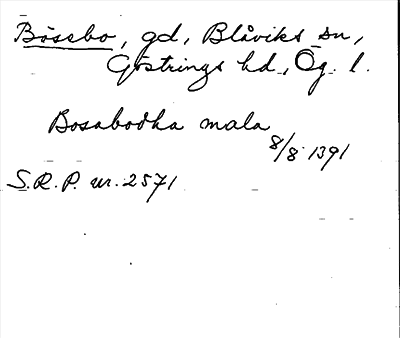 Bössbo, gd, Blåviks sn,
Göstrings hd., Ög. l.
Bosabodha mala
8/8 1391
S.R.P. nr. 2571